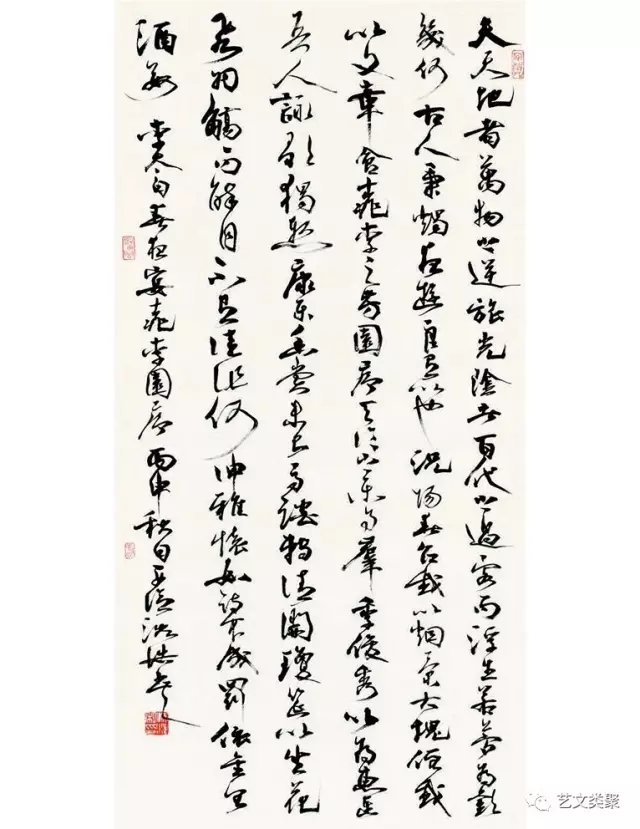 夫天地者萬物之逆旅光陰者百代之過客而浮生若夢為歡
幾何古人秉燭夜遊良有以也況陽春召我以烟景大塊假我
以文章會桃李之芳園序天倫之樂事羣季俊秀以為惠連
吾人詠歌獨慚康樂幽賞未已高談轉清開瓊筵以坐花
飛羽觴而醉月不有佳作何伸雅懷如詩不成罰依金谷
酒數 李太白春夜宴桃李園序 丙申秋日
艺文类聚